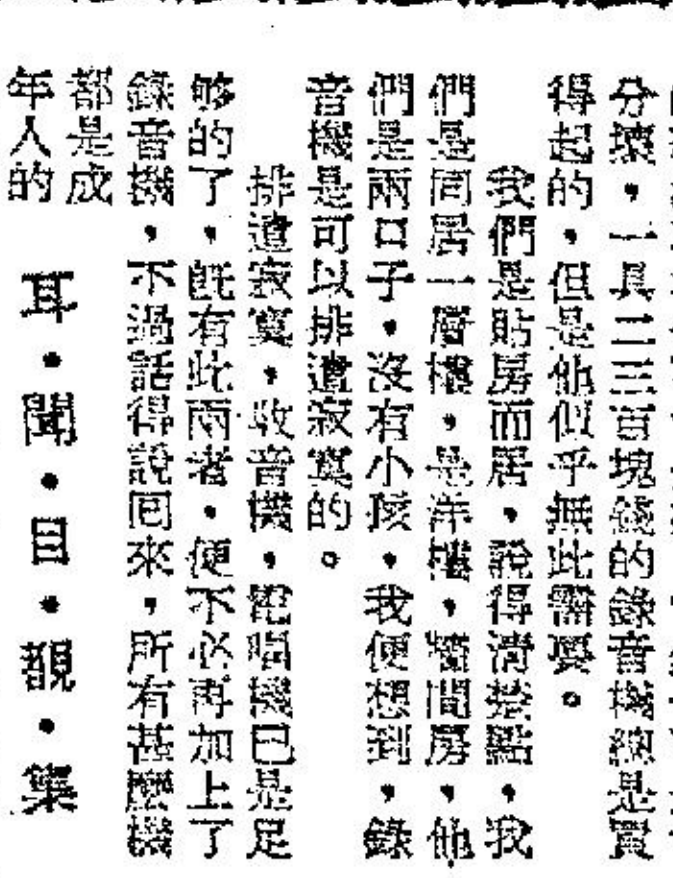 分壞，一具二三百塊錢的錄音機總是買
得起的，但是他似乎無此需要。
我們是貼房而居，說得清楚點，我
們是同居一層樓，是洋樓，隔間房，他
們是兩口子，沒有小孩，我便想到，錄
音機是可以排遣寂寞的。
排遣寂寞，收音機，電唱機已是足
够的了，既有此兩者，便不必再加上了
錄音機，不過話得說回來，所有甚麼機
都是成
年人的
耳•聞•目•覩•集